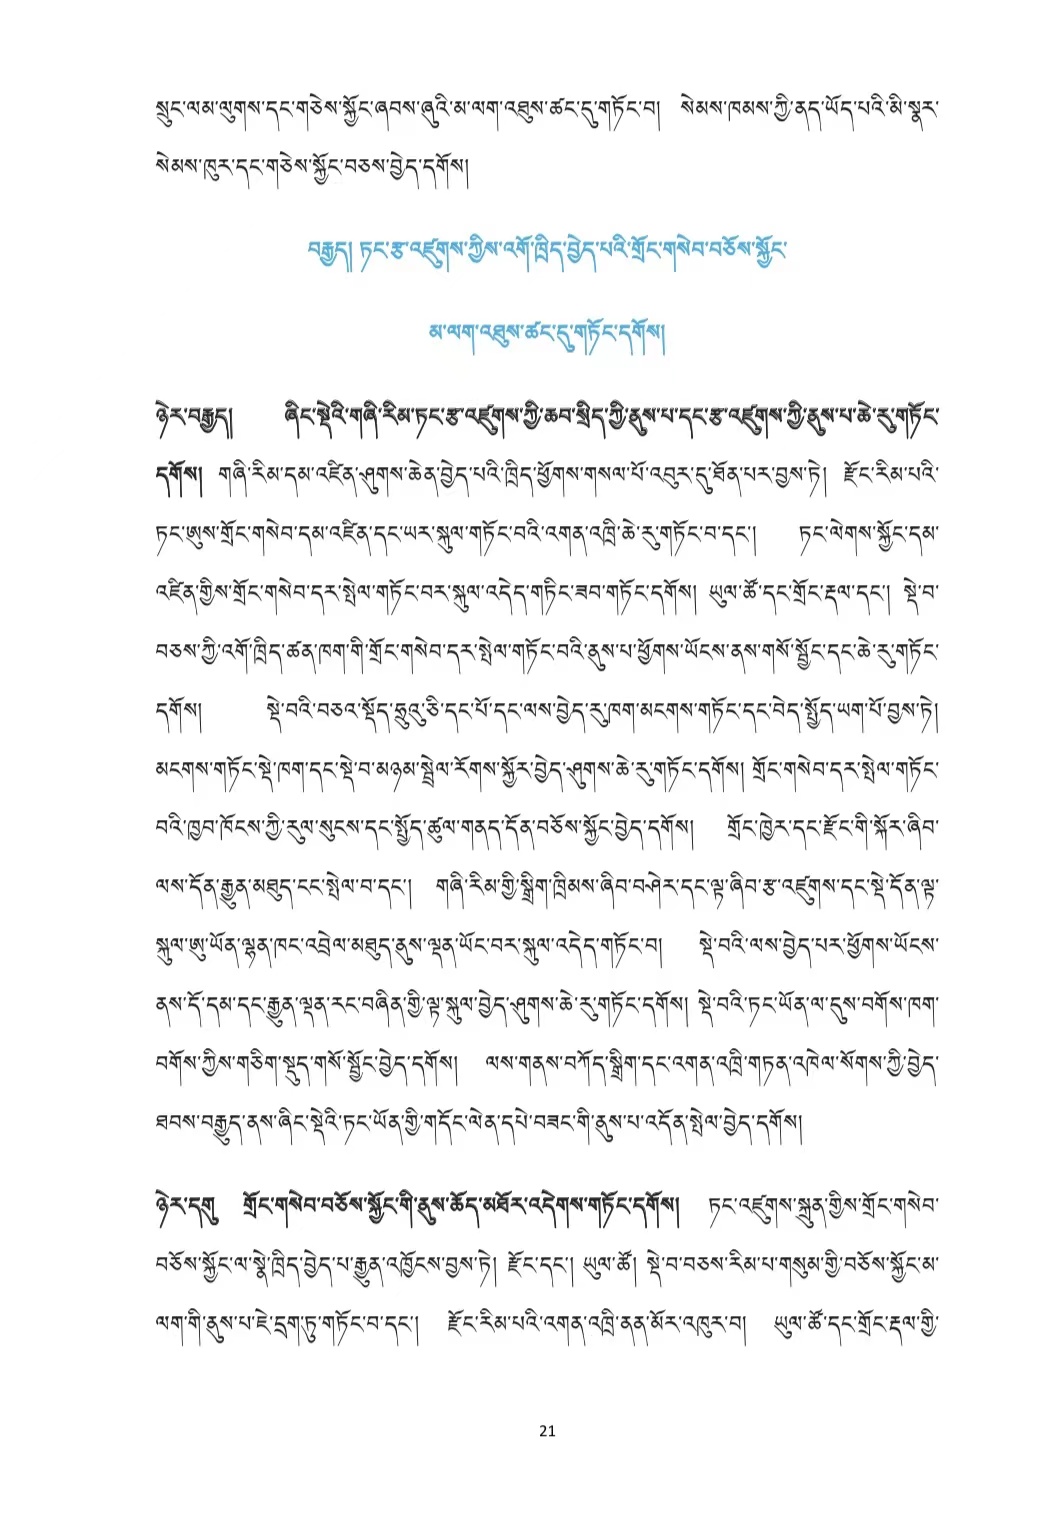 སྲུང་ལམ་ལུགས་དང་གཅེས་སྐྱོང་ཞབས་ཞུའི་མ་ལག་འཐུས་ཚང་དུ་གཏོང་བ། སེམས་ཁམས་ཀྱི་ནད་ཡོད་པའི་མི་སྣར་
སེམས་ཁུར་དང་གཅེས་སྐྱོང་བཅས་བྱེད་དགོས།
བརྒྱད། ཏང་རྩ་འཛུགས་ཀྱིས་འགོ་ཁྲིད་བྱེད་པའི་གྲོང་གསེབ་བཅོས་སྐྱོང་
མ་ལག་འཐུས་ཚང་དུ་གཏོང་དགོས།
ཉེར་བརྒྱད། ཞིང་སྡེའི་གཞི་རིམ་ཏང་རྩ་འཛུགས་ཀྱི་ཆབ་སྲིད་ཀྱི་ནུས་པ་དང་རྩ་འཛུགས་ཀྱི་ནུས་པ་ཆེ་རུ་གཏོང་
དགོས། གཞི་རིམ་དམ་འཛིན་ཤུགས་ཆེན་བྱེད་པའི་ཁྲིད་ཕྱོགས་གསལ་པོ་འབུར་དུ་ཐོན་པར་བྱས་ཏེ། རྫོང་རིམ་པའི་
ཏང་ཨུས་གྲོང་གསེབ་དམ་འཛིན་དང་ཡར་སྐུལ་གཏོང་བའི་འགན་འཁྲི་ཆེ་རུ་གཏོང་བ་དང་། ཏང་ལེགས་སྐྱོང་དམ་
འཛིན་གྱིས་གྲོང་གསེབ་དར་སྤེལ་གཏོང་བར་སྐུལ་འདེད་གཏིང་ཟབ་གཏོང་དགོས། ཡུལ་ཚོ་དང་གྲོང་རྡལ་དང་། སྡེ་བ་
བཅས་ཀྱི་འགོ་ཁྲིད་ཚན་ཁག་གི་གྲོང་གསེབ་དར་སྤེལ་གཏོང་བའི་ནུས་པ་ཕྱོགས་ཡོངས་ནས་གསོ་སྦྱོང་དང་ཆེ་རུ་གཏོང་
དགོས། སྡེ་བའི་བཅའ་སྡོད་ཧྲུའུ་ཅི་དང་པོ་དང་ལས་བྱེད་རུ་ཁག་མངགས་གཏོང་དང་བེད་སྤྱོད་ཡག་པོ་བྱས་ཏེ།
མངགས་གཏོང་སྡེ་ཁག་དང་སྡེ་བ་མཉམ་སྦྲེལ་རོགས་སྐྱོར་བྱེད་ཤུགས་ཆེ་རུ་གཏོང་དགོས། གྲོང་གསེབ་དར་སྤེལ་གཏོང་
བའི་ཁྱབ་ཁོངས་ཀྱི་རུལ་སུངས་དང་སྤྱོད་ཚུལ་གནད་དོན་བཅོས་སྐྱོང་བྱེད་དགོས། གྲོང་ཁྱེར་དང་རྫོང་གི་སྐོར་ཞིབ་
ལས་དོན་རྒྱུན་མཐུད་ངང་སྤེལ་བ་དང་། གཞི་རིམ་གྱི་སྒྲིག་ཁྲིམས་ཞིབ་བཤེར་དང་ལྟ་ཞིབ་རྩ་འཛུགས་དང་སྡེ་དོན་ལྟ་
སྐུལ་ཨུ་ཡོན་ལྷན་ཁང་འབྲེལ་མཐུད་ནུས་ལྡན་ཡོང་བར་སྐུལ་འདེད་གཏོང་བ། སྡེ་བའི་ལས་བྱེད་པར་ཕྱོགས་ཡོངས་
ནས་དོ་དམ་དང་རྒྱུན་ལྡན་རང་བཞིན་གྱི་ལྟ་སྐུལ་བྱེད་ཤུགས་ཆེ་རུ་གཏོང་དགོས། སྡེ་བའི་ཏང་ཡོན་ལ་དུས་བགོས་ཁག་
བགོས་ཀྱིས་གཅིག་སྡུད་གསོ་སྦྱོང་བྱེད་དགོས། ལས་གནས་བཀོད་སྒྲིག་དང་འགན་འཁྲི་གཏན་འཁེལ་སོགས་ཀྱི་བྱེད་
ཐབས་བརྒྱུད་ནས་ཞིང་སྡེའི་ཏང་ཡོན་གྱི་གདོང་ལེན་དཔེ་བཟང་གི་ནུས་པ་འདོན་སྤེལ་བྱེད་དགོས།
ཉེར་དགུ གྲོང་གསེབ་བཅོས་སྐྱོང་གི་ནུས་ཚོད་མཐོར་འདེགས་གཏོང་དགོས། ཏང་འཛུགས་སྐྲུན་གྱིས་གྲོང་གསེབ་
བཅོས་སྐྱོང་ལ་སྣེ་ཁྲིད་བྱེད་པ་རྒྱུན་འཁྱོངས་བྱས་ཏེ། རྫོང་དང་། ཡུལ་ཚོ། སྡེ་བ་བཅས་རིམ་པ་གསུམ་གྱི་བཅོས་སྐྱོང་མ་
ལག་གི་ནུས་པ་ཇེ་དྲག་ཏུ་གཏོང་བ་དང་། རྫོང་རིམ་པའི་འགན་འཁྲི་ནན་མོར་འཁུར་བ། ཡུལ་ཚོ་དང་གྲོང་རྡལ་གྱི་
21